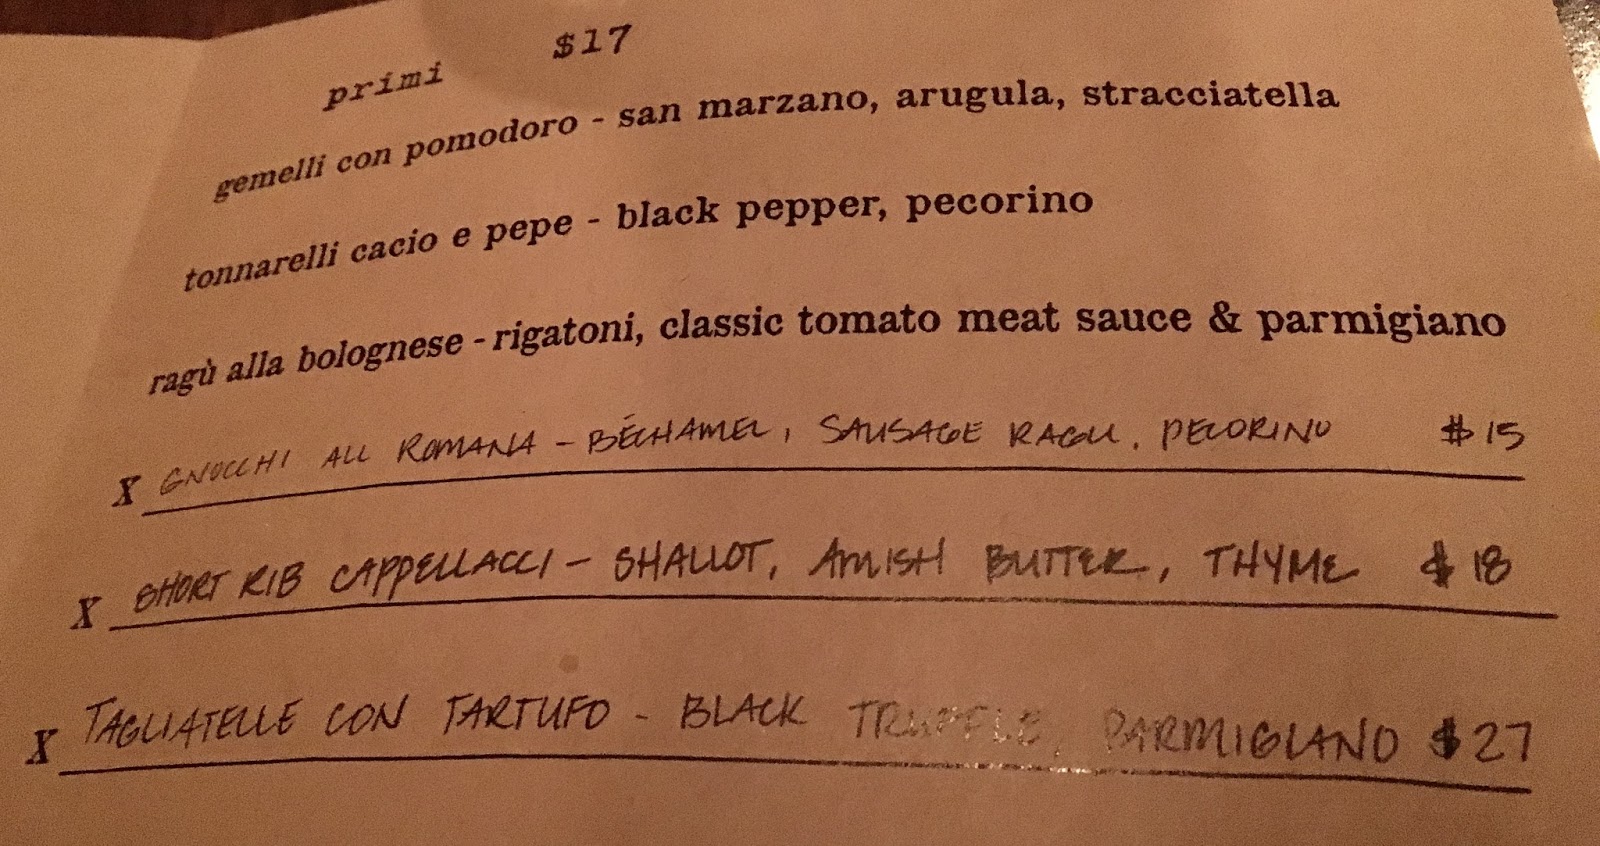 primi $17
gemelli con pomodoro - san marzano, arugula, stracciatella
tonnarelli cacio e pepe - black pepper, pecorino
ragù alla bolognese - rigatoni, classic tomato meat sauce & parmigiano
X GNOCCHI ALL ROMANA - BÉCHAMEL, SAUSAGE RAGU, PECORINO $15
X SHORT RIB CAPPELLACCI - SHALLOT, AMISH BUTTER, THYME $18
X TAGLIATELLE CON TARTUFO - BLACK TRUFFLE, PARMIGIANO $27